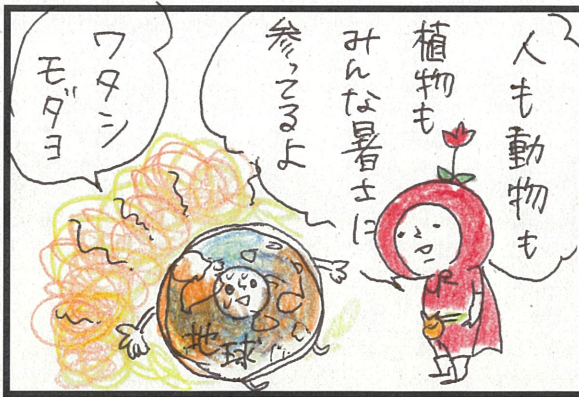 人も動物も
植物も
みんな暑さに
参ってるよ
ワタシ
モダヨ
地球